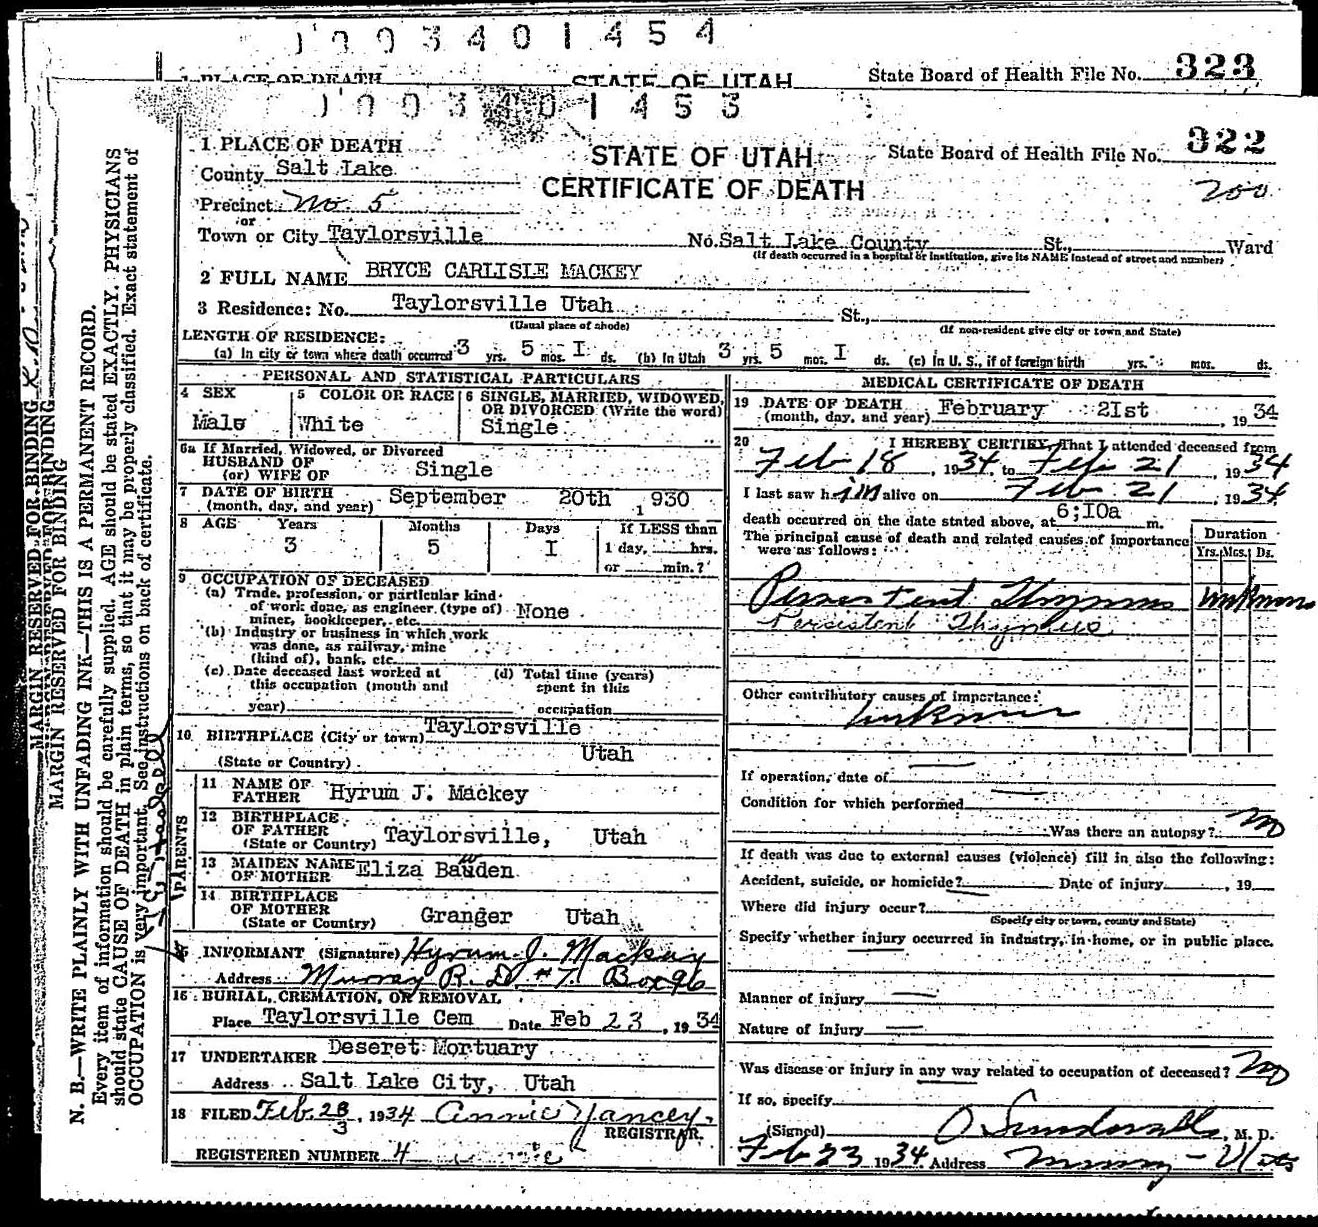 1003401454
1 PLACE OF DEATH STATE OF UTAH State Board of Health File No. 323
1003401453
1 PLACE OF DEATH STATE OF UTAH State Board of Health File No. 322
County Salt Lake CERTIFICATE OF DEATH 200
Precinct No. 5
or
Town or City Taylorsville No. Salt Lake County St., Ward
(If death occurred in a hospital or institution, give its NAME instead of street and number)
2 FULL NAME BRYCE CARLISLE MACKEY
3 Residence: No. Taylorsville Utah St.,
(Usual place of abode) (If non-resident give city or town and State)
LENGTH OF RESIDENCE:
(a) In city or town where death occurred 3 yrs. 5 mos. I ds. (b) In Utah 3 yrs. 5 mos. I ds. (c) In U. S., if of foreign birth yrs. mos. ds.
PERSONAL AND STATISTICAL PARTICULARS
4 SEX 5 COLOR OR RACE 6 SINGLE, MARRIED, WIDOWED, OR DIVORCED (Write the word)
Male White Single
6a If Married, Widowed, or Divorced
HUSBAND OF
(or) WIFE OF Single
7 DATE OF BIRTH
(month, day, and year) September 20th 1930
8 AGE Years Months Days If LESS than
3 5 I 1 day, hrs.
or min.?
9 OCCUPATION OF DECEASED
(a) Trade, profession, or particular kind
of work done, as engineer (type of)
miner, bookkeeper, etc. None
(b) Industry or business in which work
was done, as railway, mine
(kind of), bank, etc.
(c) Date deceased last worked at (d) Total time (years)
this occupation (month and spent in this
year) occupation
10 BIRTHPLACE (City or town) Taylorsville
(State or Country) Utah
PARENTS
11 NAME OF
FATHER Hyrum J. Mackey
12 BIRTHPLACE
OF FATHER
(State or Country) Taylorsville, Utah
13 MAIDEN NAME
OF MOTHER Eliza Bawden
14 BIRTHPLACE
OF MOTHER
(State or Country) Granger Utah
15 INFORMANT (Signature) Hyrum J. Mackay
Address Murray R.D. #7. Box 96
16 BURIAL, CREMATION, OR REMOVAL
Place Taylorsville Cem Date Feb 23, 1934
17 UNDERTAKER Deseret Mortuary
Address Salt Lake City, Utah
18 FILED Feb. 23, 1934 Annie Yancey
REGISTRAR.
REGISTERED NUMBER 4
MEDICAL CERTIFICATE OF DEATH
19 DATE OF DEATH
(month, day, and year) February 2Ist, 1934
20 I HEREBY CERTIFY, That I attended deceased from
Feb 18, 1934 to Feb 21, 1934
I last saw him alive on Feb 21, 1934
death occurred on the date stated above, at 6;I0a m.
The principal cause of death and related causes of importance
were as follows: Duration
Yrs. Mos. Ds.
Persistent Thymus unknown
Persistent Thymus
Other contributory causes of importance:
unknown
If operation, date of —
Condition for which performed —
Was there an autopsy? no
If death was due to external causes (violence) fill in also the following:
Accident, suicide, or homicide? Date of injury , 19
Where did injury occur?
(Specify city or town, county and State)
Specify whether injury occurred in industry, in home, or in public place.
Manner of injury —
Nature of injury —
Was disease or injury in any way related to occupation of deceased? no
If so, specify
(Signed) O Sundwall, M. D.
Feb 23 1934 Address Murray - Utah
MARGIN RESERVED FOR BINDING
MARGIN RESERVED FOR BINDING
N. B.—WRITE PLAINLY WITH UNFADING INK—THIS IS A PERMANENT RECORD.
Every item of information should be carefully supplied. AGE should be stated EXACTLY. PHYSICIANS
should state CAUSE OF DEATH in plain terms, so that it may be properly classified. Exact statement of
OCCUPATION is very important. See instructions on back of certificate.